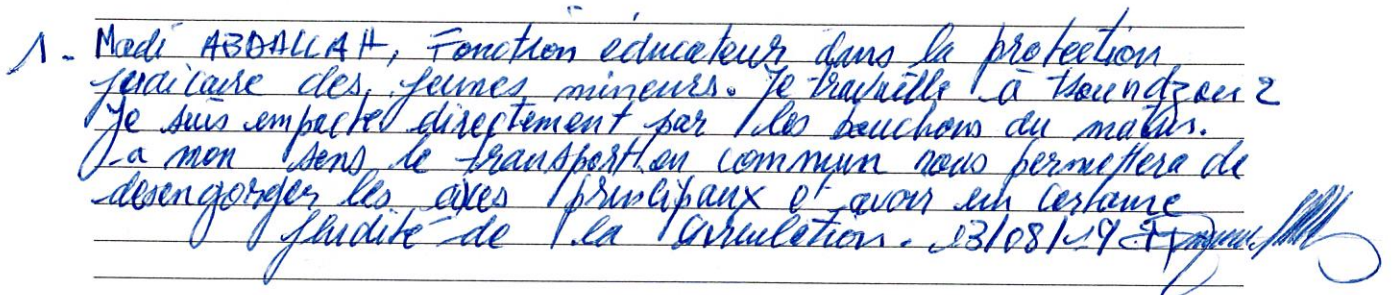 1- Madi ABDALLAH, Fonction éducateur dans la protection
judiciaire des jeunes mineurs. Je travaille à Tsoundzou 2
Je suis impacté directement par les bouchons du matin.
à mon sens le transport en commun nous permettera de
desengorger les axes principaux d'avoir un certaine
fluidité de la circulation. 13/08/19